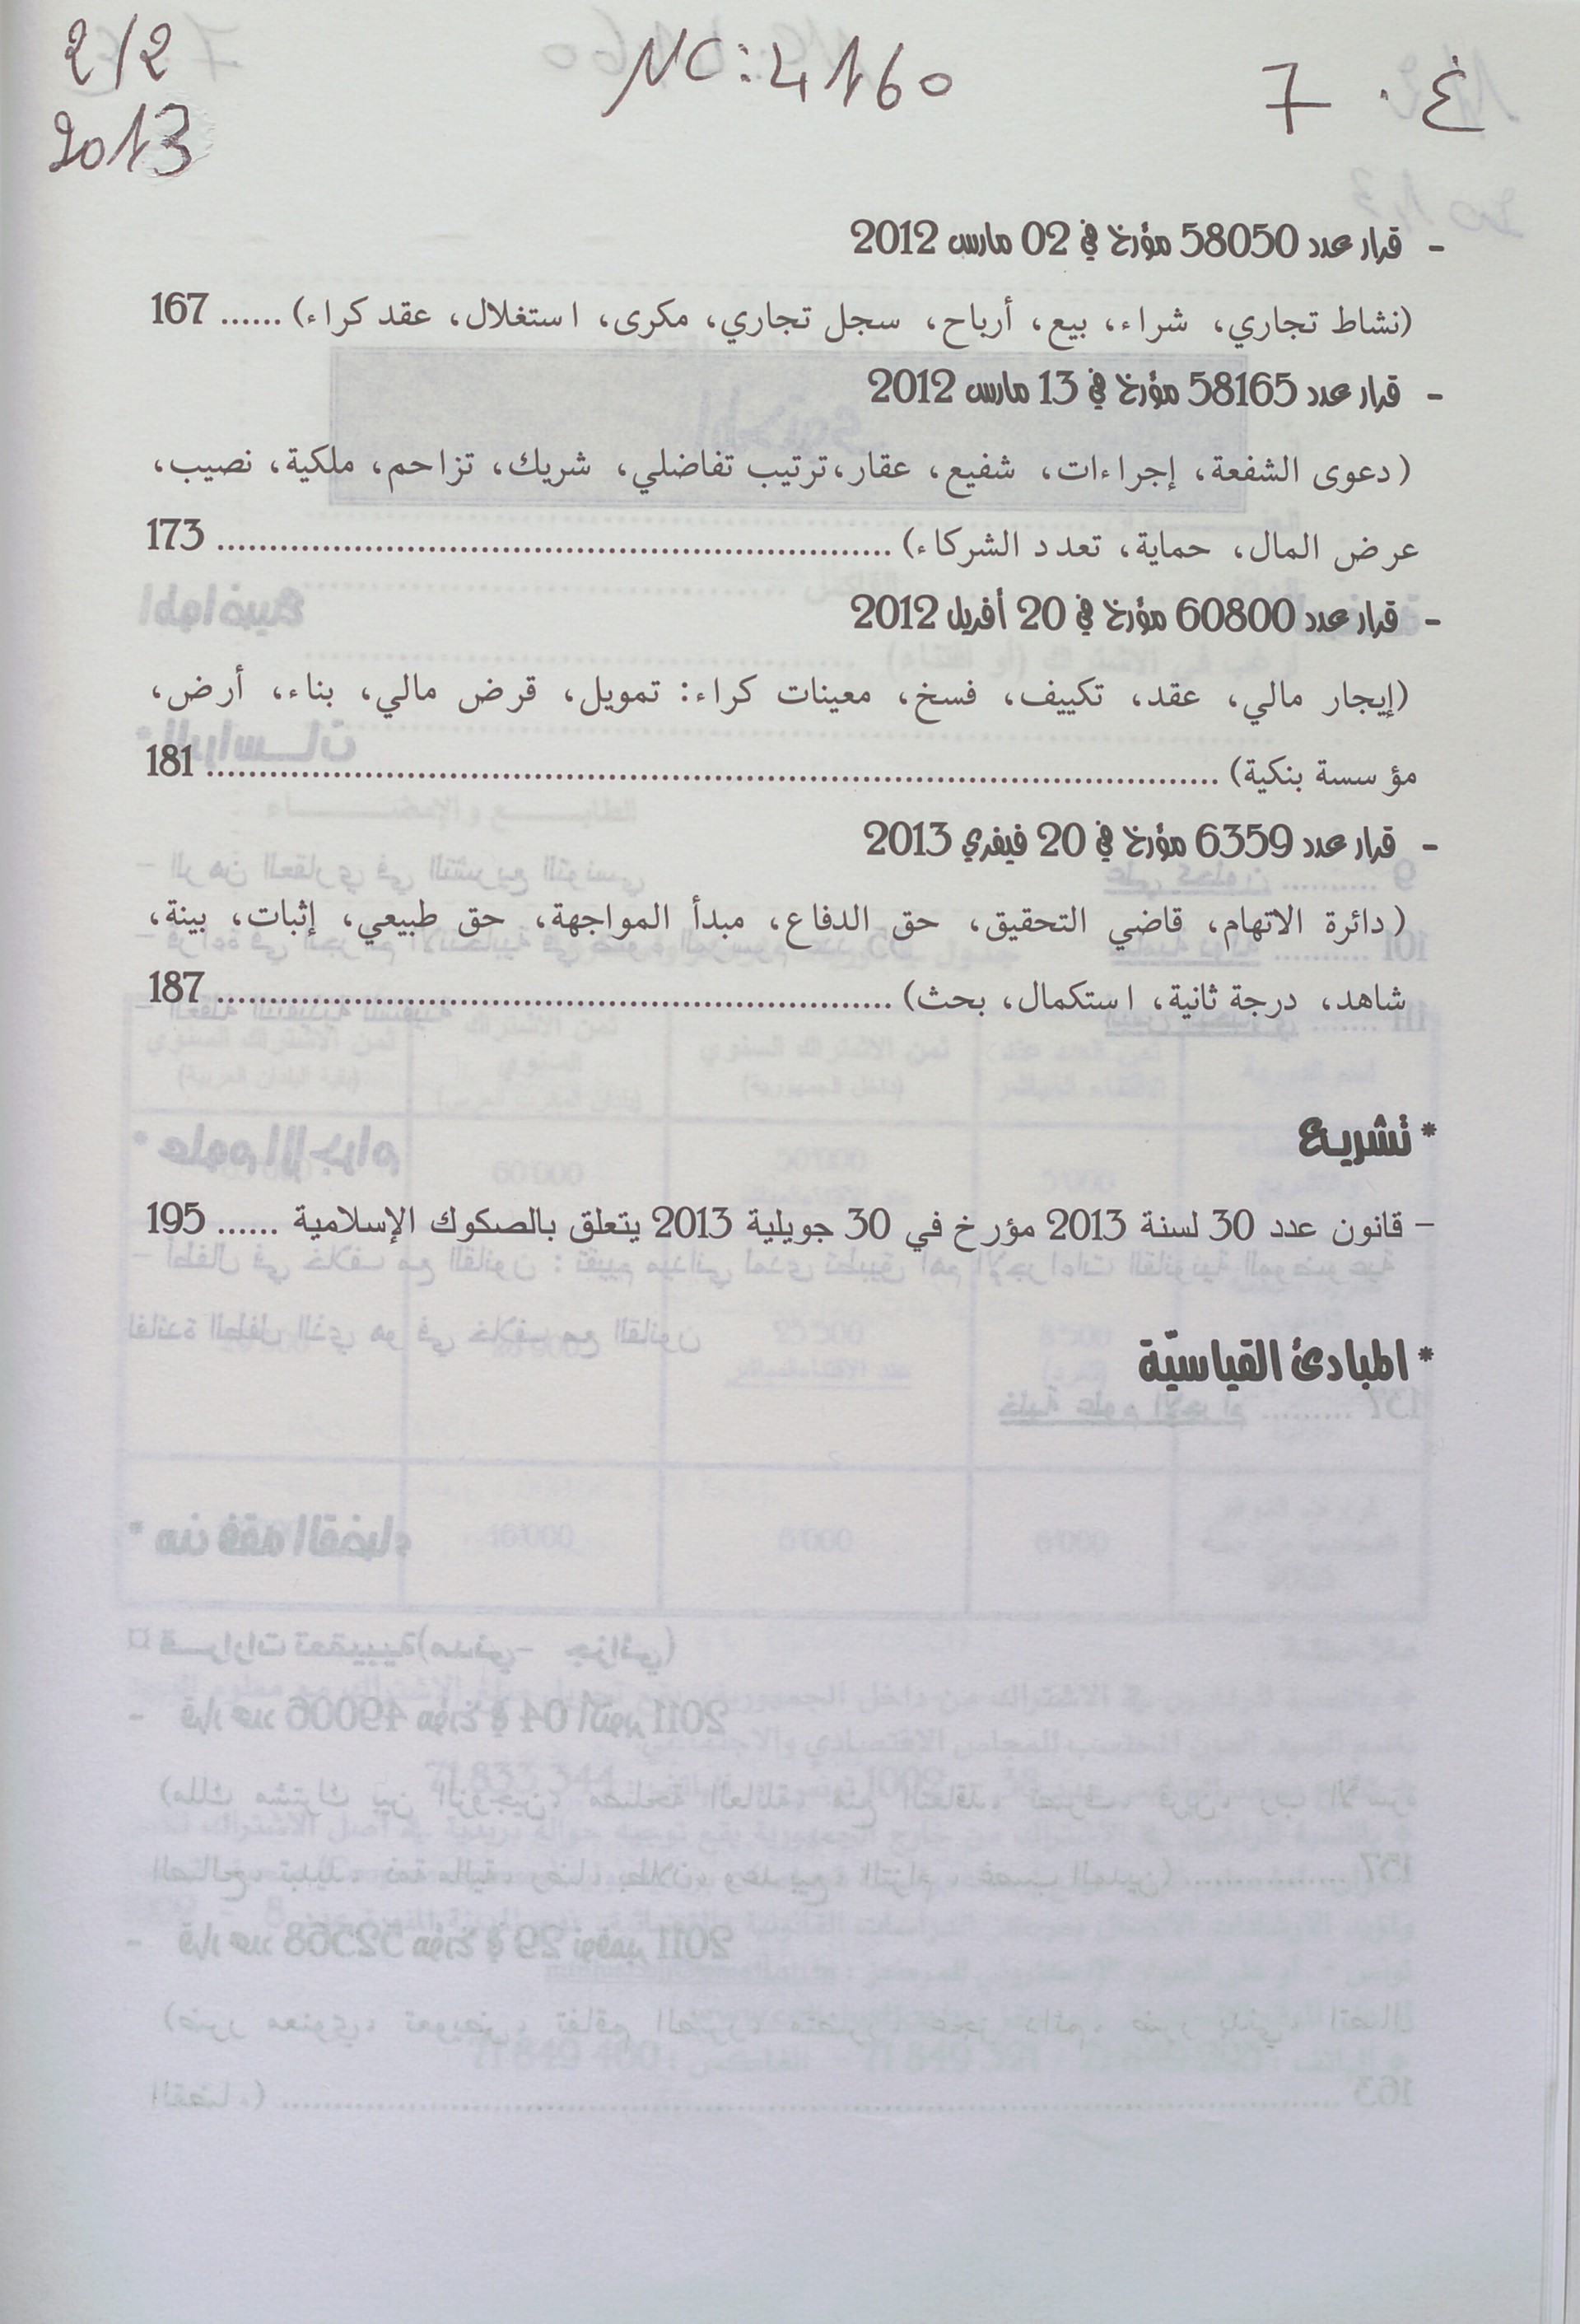 2/2
2013
NC: 4160
ع. 7
- قرار عدد 58050 مؤرخ في 02 مارس 2012
(نشاط تجاري، شراء، بيع، أرباح، سجل تجاري، مكرى، استغلال، عقد كراء) ...... 167
- قرار عدد 58165 مؤرخ في 13 مارس 2012
(دعوى الشفعة، إجراءات، شفيع، عقار، ترتيب تفاضلي، شريك، تزاحم، ملكية، نصيب،
عرض المال، حماية، تعدد الشركاء) ................................................................ 173
- قرار عدد 60800 مؤرخ في 20 أفريل 2012
(إيجار مالي، عقد، تكييف، فسخ، معينات كراء: تمويل، قرض مالي، بناء، أرض،
مؤسسة بنكية) ................................................................................................ 181
- قرار عدد 6359 مؤرخ في 20 فيفري 2013
(دائرة الاتهام، قاضي التحقيق، حق الدفاع، مبدأ المواجهة، حق طبيعي، إثبات، بينة،
شاهد، درجة ثانية، استكمال، بحث) ................................................................ 187
* تشريع
– قانون عدد 30 لسنة 2013 مؤرخ في 30 جويلية 2013 يتعلق بالصكوك الإسلامية ...... 195
* المبادئ القياسيّة